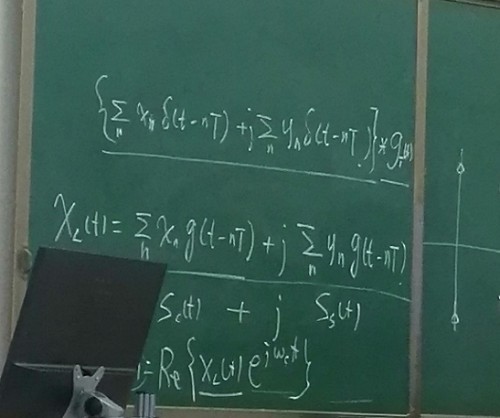 {∑ₙ xₙ δ(t-nT) + j ∑ₙ yₙ δ(t-nT)} * g_T(t)
X_L(t) = ∑ₙ xₙ g(t-nT) + j ∑ₙ yₙ g(t-nT)
S_c(t) + j S_s(t)
= Re {X_L(t) e^{jω_c t}}